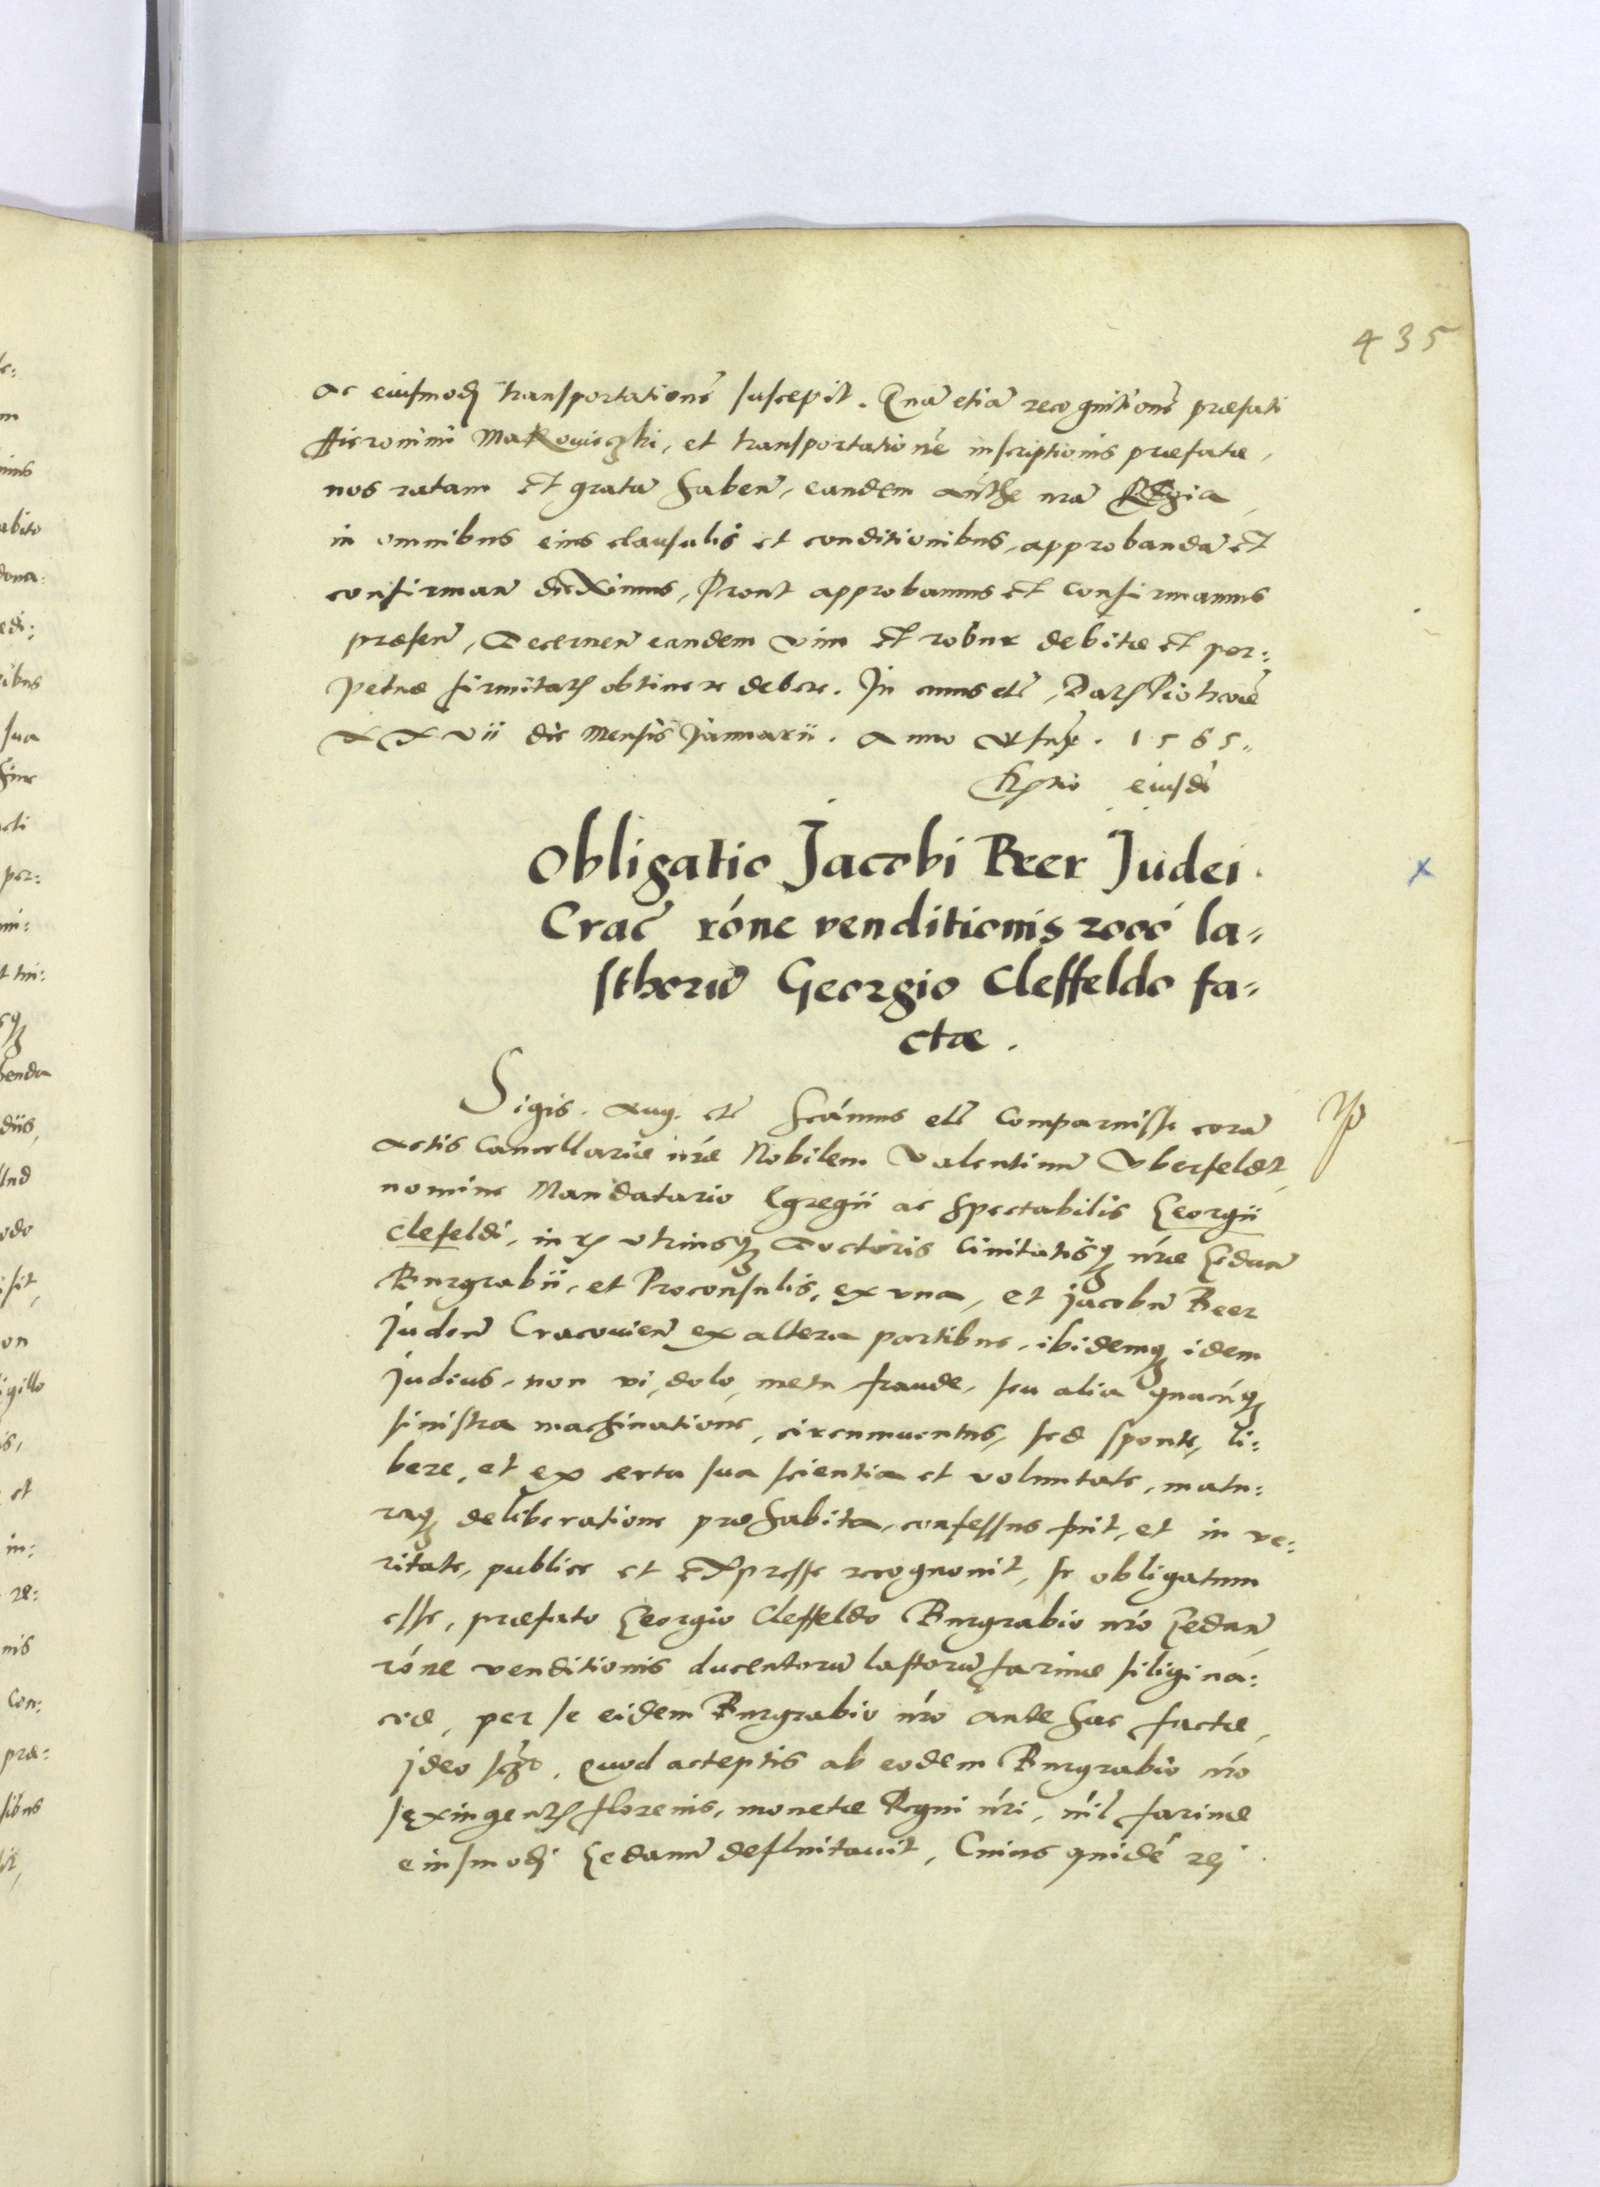 435
ac eiusmodj transportationē suscepit. Quā etiā recognitionē præfati
Hieronimi Makowieczki, et transportationē inscriptionis præfatæ,
nos ratam et gratā haben̄, eandem aūthe nr̄a Regia,
in omnibus eius clausulis et conditionibus, approbandā et
confirman̄ duximus, Prout approbamus et confirmamus
præsen̄, Decernen̄ eandem vim et robur debitæ et per:
petuæ firmitatꝭ obtinere debere. In cuius etc̄, Datꝭ Piotrcoviē
XXvii die Mensis Januarii. Anno ut supr. 1565.
eiusdē
Obligatio Jacobi Beer Judei
Crac̄ rōne venditionis 2000 la-
sthorū Georgio Cleffeldo fa-
ctæ.
Sigis. Aug. etc̄ Scāmus etc̄ Comparuisse corā
actis Cancellariæ nr̄æ Nobilem Valentinū Vberfeldt,
nomine Mandatario Egregii ac Spectabilis Georgii
Clefeldi, in rꝭ utriusqꝫ Doctoris Ciuitatisqꝫ nr̄æ Gedan̄
Burgrabii, et Proconsulis, ex vna, et jacobū Beer
Judeū Cracouien̄ ex altera partibus, ibidemqꝫ idem
Judæus, non vi, dolo, metu fraude, seu alia quacūqꝫ
sinistra machinatione, circumuentus, sed sponte, li:
bere, et ex certa sua scientia et voluntate, matu:
raqꝫ deliberatione præhabita, confessus fuit, et in ve:
ritate, publice et expresse recognouit, se obligatum
esse, præfato Georgio Cleffeldo Burgrabio nr̄o Gedan̄
rōne venditionis ducentorū lastorū farinæ siliginā:
ceæ, per se eidem Burgrabio nr̄o antehac factæ,
jdeo, quod acceptis ab eodem Burgrabio nr̄o
sexingentꝭ florenis, monetæ Regni nr̄i, nīl farinæ
eiusmodj Gedanū defluitauit, Cuius quidē rej